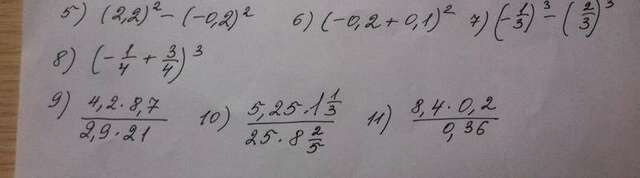 5) (2,2)² - (-0,2)² 6) (-0,2 + 0,1)² 7) (-1/3)³ - (2/3)³
8) (-1/4 + 3/4)³
9) 4,2 · 8,7 / 2,9 · 21 10) 5,25 · 1 1/3 / 25 · 8 2/5 11) 8,4 · 0,2 / 0,36